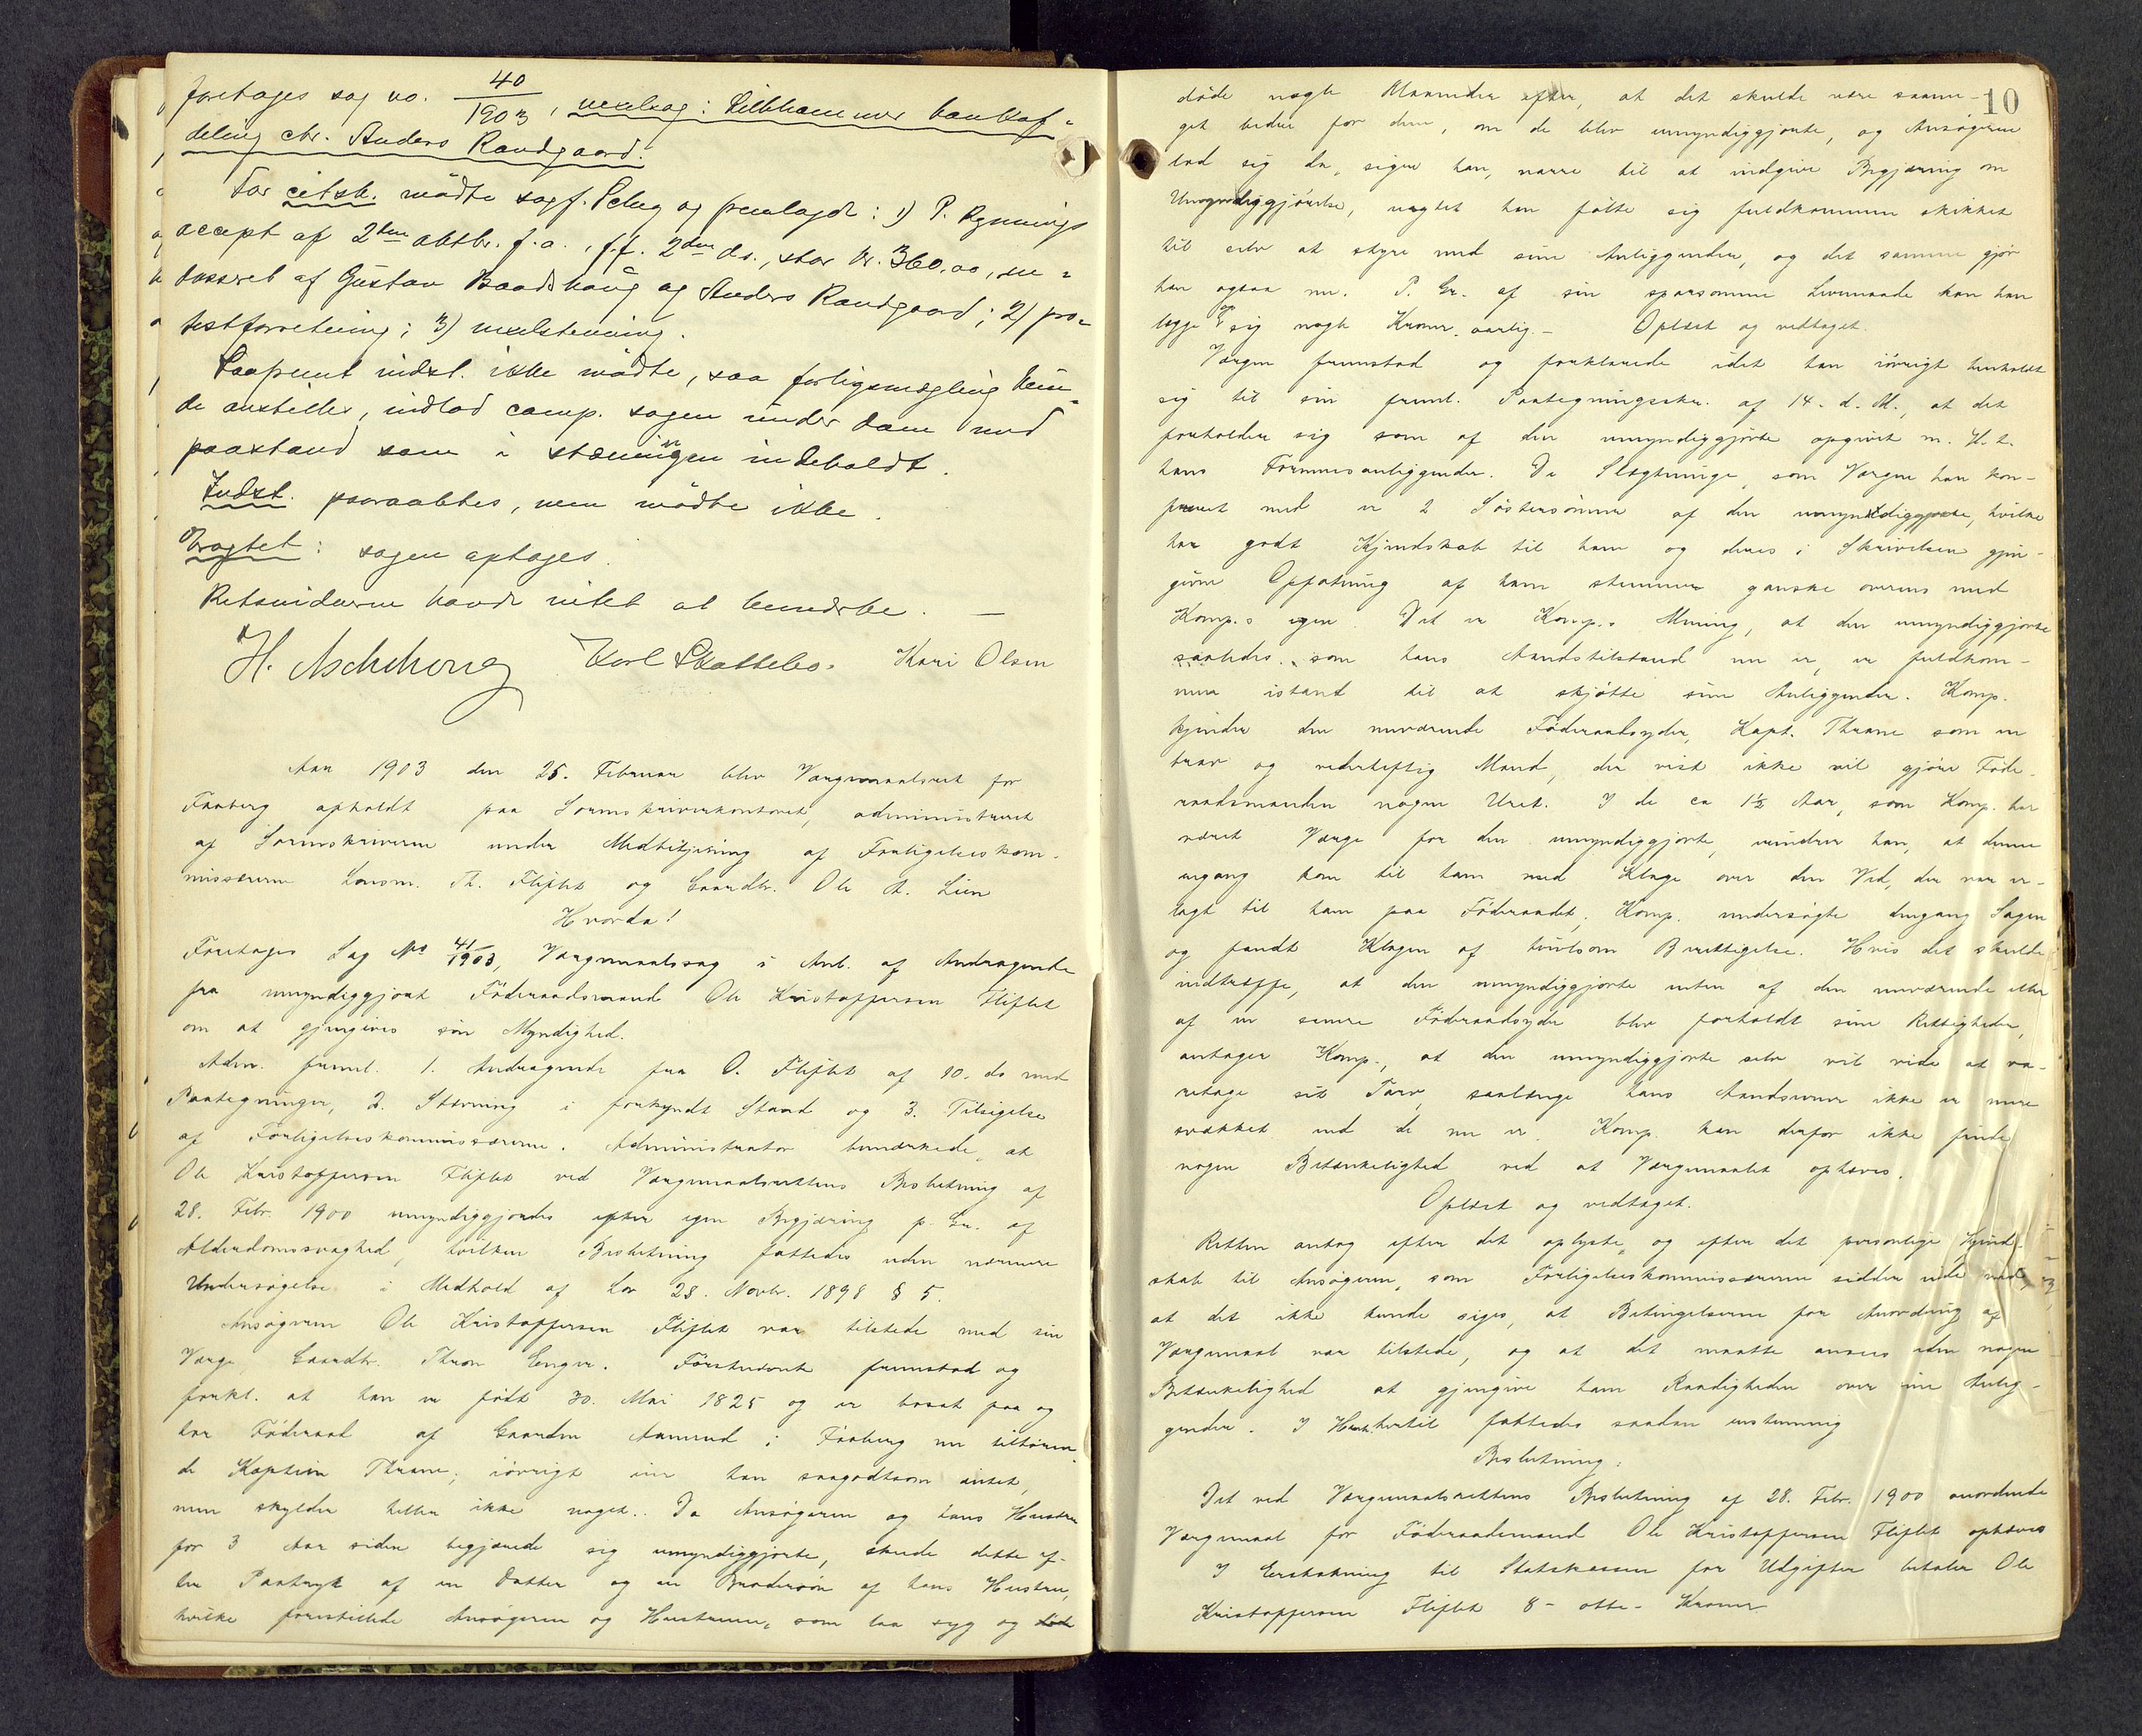 foretages sag no. 40/1903, vexelsag: Lillehammer bankaf=
deling ctr. Anders Randgaard.
For citst. mødte sagf. Schug og fremlagde: 1) P. Rynnings
accept af 2den oktbr. f.a., f.f. 2den ds., stor kr. 360,00, en=
dosseret af Gustav Baadshaug og Anders Randgaard; 2) pro=
testforretning; 3) vexelstevning.
Saafremt indst. ikke mødte, saa forligsmægling kun=
de anstilles, indlod comp. sagen under dom med
paastand som i stævningen indeholdt.
Indst. paaraabtes, men mødte ikke.
Eragtet: sagen optages.
Retsvidnerne havde intet at bemærke. —
H. Aschehoug Karl Skattebo. Kari Olsen
Aar 1903 den 25. Februar blev Værgemaalsret for
Faaberg afholdt paa Sorenskriverkontoret, administreret
af Sorenskriveren under Medbetjening af Forligelseskom-
missærerne Lensm. Th. Fliflet og Gaardbr. Ole A. Lien
Hvorda!
Foretoges Sag No 41/1903, Værgemaalssag i Anl. af Andragende
fra umyndiggjort Føderaadsmand Ole Kristoffersen Fliflet
om at gjengives sin Myndighed.
Adm. freml. 1. Andragende fra O. Fliflet af 10. ds med
Paategninger, 2. Stævning i forkyndt Stand og 3. Tilsigelse
af Forligelseskommissærerne. Administrator bemærkede, at
Ole Kristoffersen Fliflet ved Værgemaalsrettens Beslutning af
28. Febr. 1900 umyndiggjordes efter egen Begjæring p. Gr. af
Alderdomssvaghed, hvilken Beslutning fattedes uden nærmere
Undersøgelse i Medhold af Lov 28. Novbr. 1898 § 5.
Ansøgeren Ole Kristoffersen Fliflet var tilstede med sin
Værge, Gaardbr. Thron Enger. Førstnævnte fremstod og
forkl. at han er født 30. Mai 1825 og er bosat paa og
har Føderaad af Gaarden Aamrud i Faaberg nu tilhøren-
de Kaptein Thrane; iøvrigt eier han saagodtsom intet,
men skylder heller ikke noget. Da Ansøgeren og hans Hustru
for 3 Aar siden begjærede sig umyndiggjorte, skede dette ef-
ter Paatryk af en Datter og en Brodersøn af hans Hustru,
hvilke forestillede Ansøgeren og Hustruen, som laa syg og døde
10
døde nogle Maaneder efter, at det skulde være saame-
get bedre for dem, om de blev umyndiggjorte, og Ansøgeren
lod sig da, siger han, narre til at indgive Begjæring om
Umyndiggjørelse, uagtet han følte sig fuldkommen skikket
til selv at styre med sine Anliggender, og det samme gjør
han ogsaa nu. P. Gr. af sin sparsomme Levemaade kan han
lægge op sig nogle Kroner aarlig. — Oplæst og vedtaget.
Værgen fremstod og forklarede idet han iøvrigt henholdt
sig til sin freml. Paategningsskr. af 14. d. M., at det
forholder sig som af den umyndiggjorte opgivet m. H. t.
hans Formuesanliggender. De Slægtninge, som Værgen har kon-
fereret med er 2 Søstersønner af den umyndiggjorte, hvilke
har godt Kjendskab til ham og deres i Skrivelsen gjen-
givne Opfatning af ham stemmer ganske overens med
Komp.s egen. Det er Komp.s Mening, at den umyndiggjorte
saaledes som hans Aandstilstand nu er, er fuldkom-
men istand til at skjøtte sine Anliggender. Komp.
kjender den nuværende Føderaadsyder, Kapt. Thrane som en
brav og vederheftig Mand, der vist ikke vil gjøre Føde-
raadsmanden nogen Uret. I de ca 1½ Aar, som Komp. har
været Værge for den umyndiggjorte, mindes han, at denne
engang kom til ham med Klage over den Ved, der var er-
lagt til ham paa Føderaadet. Komp. undersøgte dengang Sagen
og fandt Klagen af tvivlsom Berettigelse. Hvis det skulde
indtræffe, at den umyndiggjorte enten af den nuværende eller
af en senere Føderaadsyder blev forholdt sine Rettigheder,
antager Komp., at den umyndiggjorte selv vil vide at va-
retage sit Tarv, saalænge hans Aandsevner ikke er mere
svækket end de nu er. Komp. kan derfor ikke finde
nogen Betænkelighed ved at Værgemaalet ophæves.
Oplæst og vedtaget.
Retten antog efter det oplyste, og efter det personlige Kjend-
skab til Ansøgeren, som Forligelseskommissærerne sidder inde med,
at det ikke kunde siges, at Betingelserne for Anordning af
Værgemaal var tilstede, og at det maatte ansees uden nogen
Betænkelighed at gjengive ham Raadigheden over sine Anlig-
gender. I Henh. hertil fattedes saadan enstemmig
Beslutning:
Det ved Værgemaalsrettens Beslutning af 28. Febr. 1900 anordnede
Værgemaal for Føderaadsmand Ole Kristoffersen Fliflet ophæves
I Erstatning til Statskassen for Udgifter betaler Ole
Kristoffersen Fliflet 8 - otte - Kroner